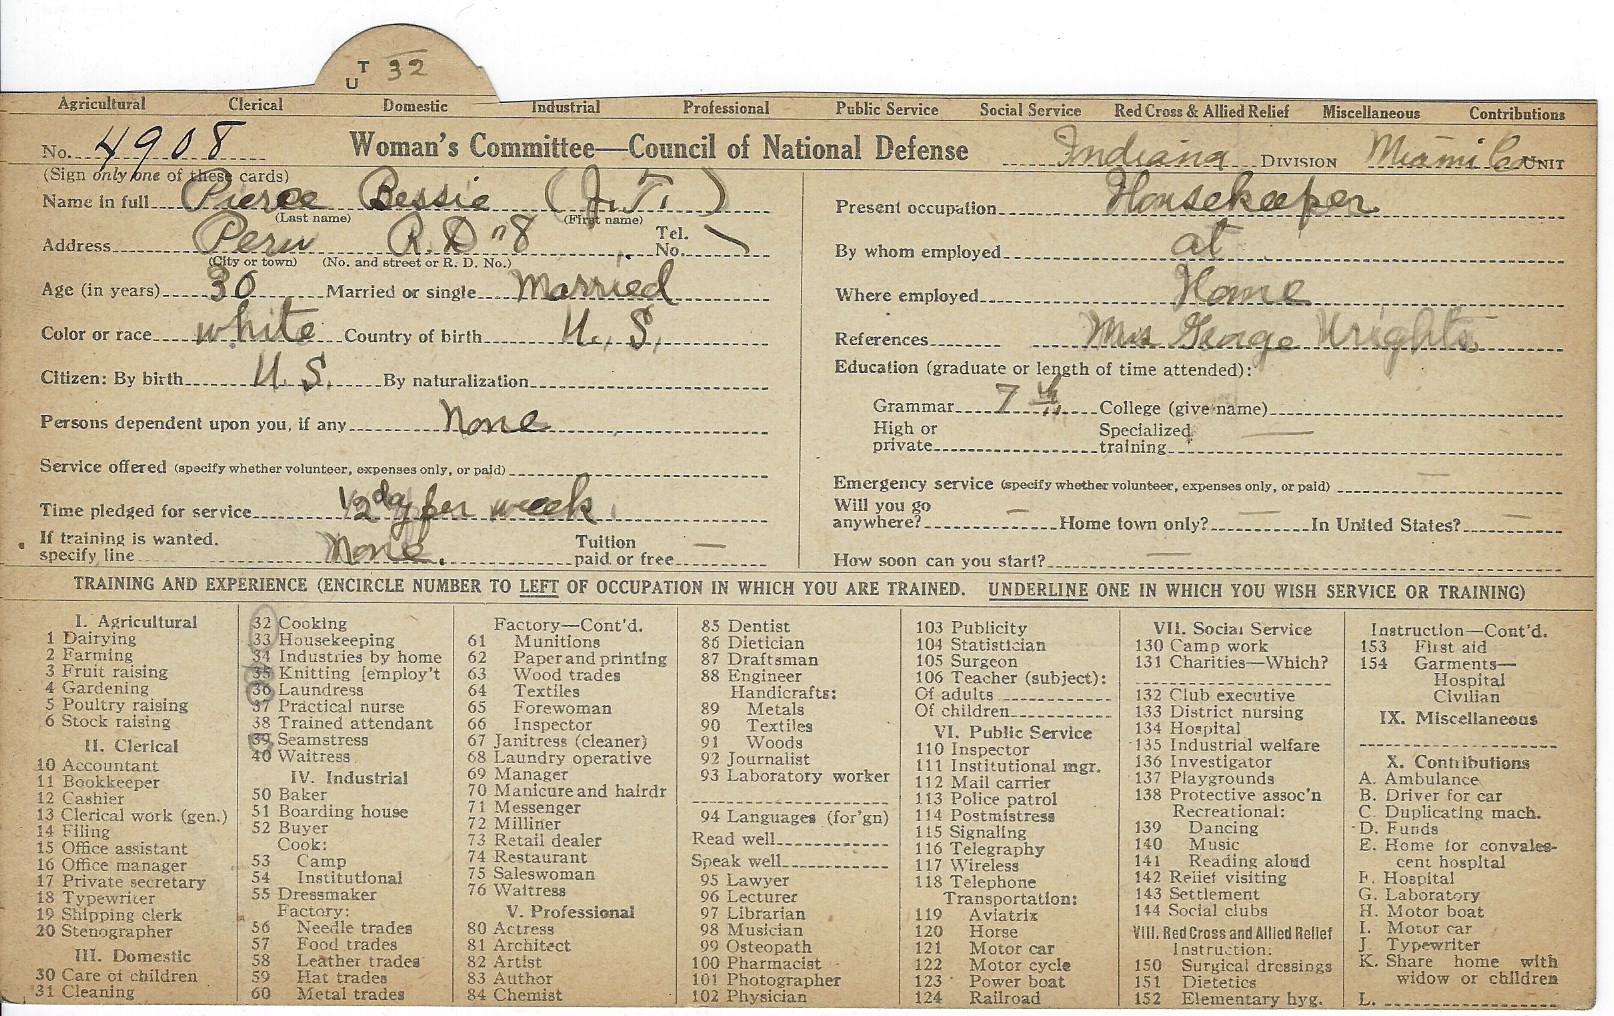 UT 32
Agricultural Clerical Domestic Industrial Professional Public Service Social Service Red Cross & Allied Relief Miscellaneous Contributions
No. 4908 Woman's Committee—Council of National Defense Indiana DIVISION Miami Co. UNIT
(Sign only one of these cards)
Name in full Pierce Bessie (J. T.)
(Last name) (First name)
Address Peru R. D "8 Tel. No.
(City or town) (No. and street or R. D. No.)
Age (in years) 30 Married or single Married
Color or race white Country of birth U. S.
Citizen: By birth U. S. By naturalization
Persons dependent upon you, if any None
Service offered (specify whether volunteer, expenses only, or paid)
Time pledged for service 1/2 day per week
If training is wanted. specify line None. Tuition paid or free —
Present occupation Housekeeper
By whom employed at
Where employed Home
References Mrs George Wrights
Education (graduate or length of time attended):
Grammar 7th College (give name)
High or private Specialized training —
Emergency service (specify whether volunteer, expenses only, or paid) —
Will you go anywhere? — Home town only? — In United States? —
How soon can you start? —
TRAINING AND EXPERIENCE (ENCIRCLE NUMBER TO LEFT OF OCCUPATION IN WHICH YOU ARE TRAINED. UNDERLINE ONE IN WHICH YOU WISH SERVICE OR TRAINING)
I. Agricultural
1 Dairying
2 Farming
3 Fruit raising
4 Gardening
5 Poultry raising
6 Stock raising
II. Clerical
10 Accountant
11 Bookkeeper
12 Cashier
13 Clerical work (gen.)
14 Filing
15 Office assistant
16 Office manager
17 Private secretary
18 Typewriter
19 Shipping clerk
20 Stenographer
III. Domestic
30 Care of children
31 Cleaning
32 Cooking
33 Housekeeping
34 Industries by home
35 Knitting [employ't
36 Laundress
37 Practical nurse
38 Trained attendant
39 Seamstress
40 Waitress
IV. Industrial
50 Baker
51 Boarding house
52 Buyer
Cook:
53 Camp
54 Institutional
55 Dressmaker
Factory:
56 Needle trades
57 Food trades
58 Leather trades
59 Hat trades
60 Metal trades
Factory—Cont'd.
61 Munitions
62 Paper and printing
63 Wood trades
64 Textiles
65 Forewoman
66 Inspector
67 Janitress (cleaner)
68 Laundry operative
69 Manager
70 Manicure and hairdr
71 Messenger
72 Milliner
73 Retail dealer
74 Restaurant
75 Saleswoman
76 Waitress
V. Professional
80 Actress
81 Architect
82 Artist
83 Author
84 Chemist
85 Dentist
86 Dietician
87 Draftsman
88 Engineer
Handicrafts:
89 Metals
90 Textiles
91 Woods
92 Journalist
93 Laboratory worker
94 Languages (for'gn)
Read well
Speak well
95 Lawyer
96 Lecturer
97 Librarian
98 Musician
99 Osteopath
100 Pharmacist
101 Photographer
102 Physician
103 Publicity
104 Statistician
105 Surgeon
106 Teacher (subject):
Of adults
Of children
VI. Public Service
110 Inspector
111 Institutional mgr.
112 Mail carrier
113 Police patrol
114 Postmistress
115 Signaling
116 Telegraphy
117 Wireless
118 Telephone
Transportation:
119 Aviatrix
120 Horse
121 Motor car
122 Motor cycle
123 Power boat
124 Railroad
VII. Social Service
130 Camp work
131 Charities—Which?
132 Club executive
133 District nursing
134 Hospital
135 Industrial welfare
136 Investigator
137 Playgrounds
138 Protective assoc'n
Recreational:
139 Dancing
140 Music
141 Reading aloud
142 Relief visiting
143 Settlement
144 Social clubs
VIII. Red Cross and Allied Relief
Instruction:
150 Surgical dressings
151 Dietetics
152 Elementary hyg.
Instruction—Cont'd.
153 First aid
154 Garments—
Hospital
Civilian
IX. Miscellaneous
X. Contributions
A. Ambulance
B. Driver for car
C. Duplicating mach.
D. Funds
E. Home for convales-
cent hospital
F. Hospital
G. Laboratory
H. Motor boat
I. Motor car
J. Typewriter
K. Share home with
widow or children
L.